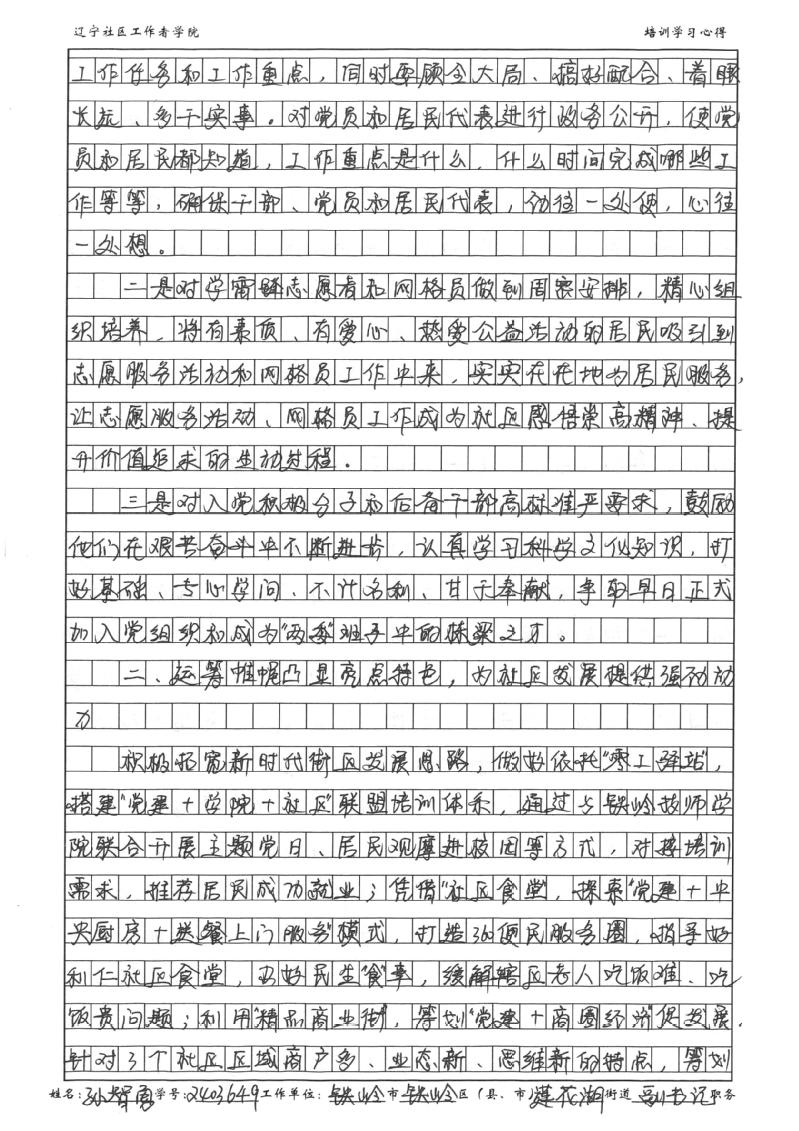 辽宁社区工作者学院 培训学习心得
工作任务和工作重点，同时要顾全大局、搞好配合、着眼
长远、多干实事。对党员和居民代表进行政务公开，使党
员和居民都知道，工作重点是什么，什么时间完成哪些工
作等等，确保干部、党员和居民代表，劲往一处使，心往
一处想。
二是对学雷锋志愿者和网格员做到周密安排，精心组
织培养，将有素质、有爱心、热爱公益活动的居民吸引到
志愿服务活动和网格员工作中来，实实在在地为居民服务，
让志愿服务活动、网格员工作成为社区感悟崇高精神、提
升价值追求的生动过程。
三是对入党积极分子和后备干部高标准严要求，鼓励
他们在艰苦奋斗中不断进步，认真学习科学文化知识，打
好基础、专心学问、不计名利、甘于奉献，争取早日正式
加入党组织和成为"两委"班子中的栋梁之才。
二、运筹帷幄凸显亮点特色，为社区发展提供强劲动
力
积极拓宽新时代街区发展思路，做好依托"零工驿站"，
搭建"党建+学院+社区"联盟培训体系，通过与铁岭技师学
院联合开展主题党日、居民观摩进校园等方式，对接培训
需求，推荐居民成功就业；凭借"社区食堂，探索"党建+中
央厨房+送餐上门服务"模式，打造 便民服务圈，指导好
利仁社区食堂，办好民生"食"事，缓解辖区老人吃饭难、吃
饭贵问题；利用"精品商业街"，筹划"党建+商圈经济"促发展，
针对3个社区区域商户多、业态新、思维新的特点，筹划
姓名：孙 学号：2403649 工作单位：铁岭市铁岭区（县、市）莲花湖街道 副书记 职务